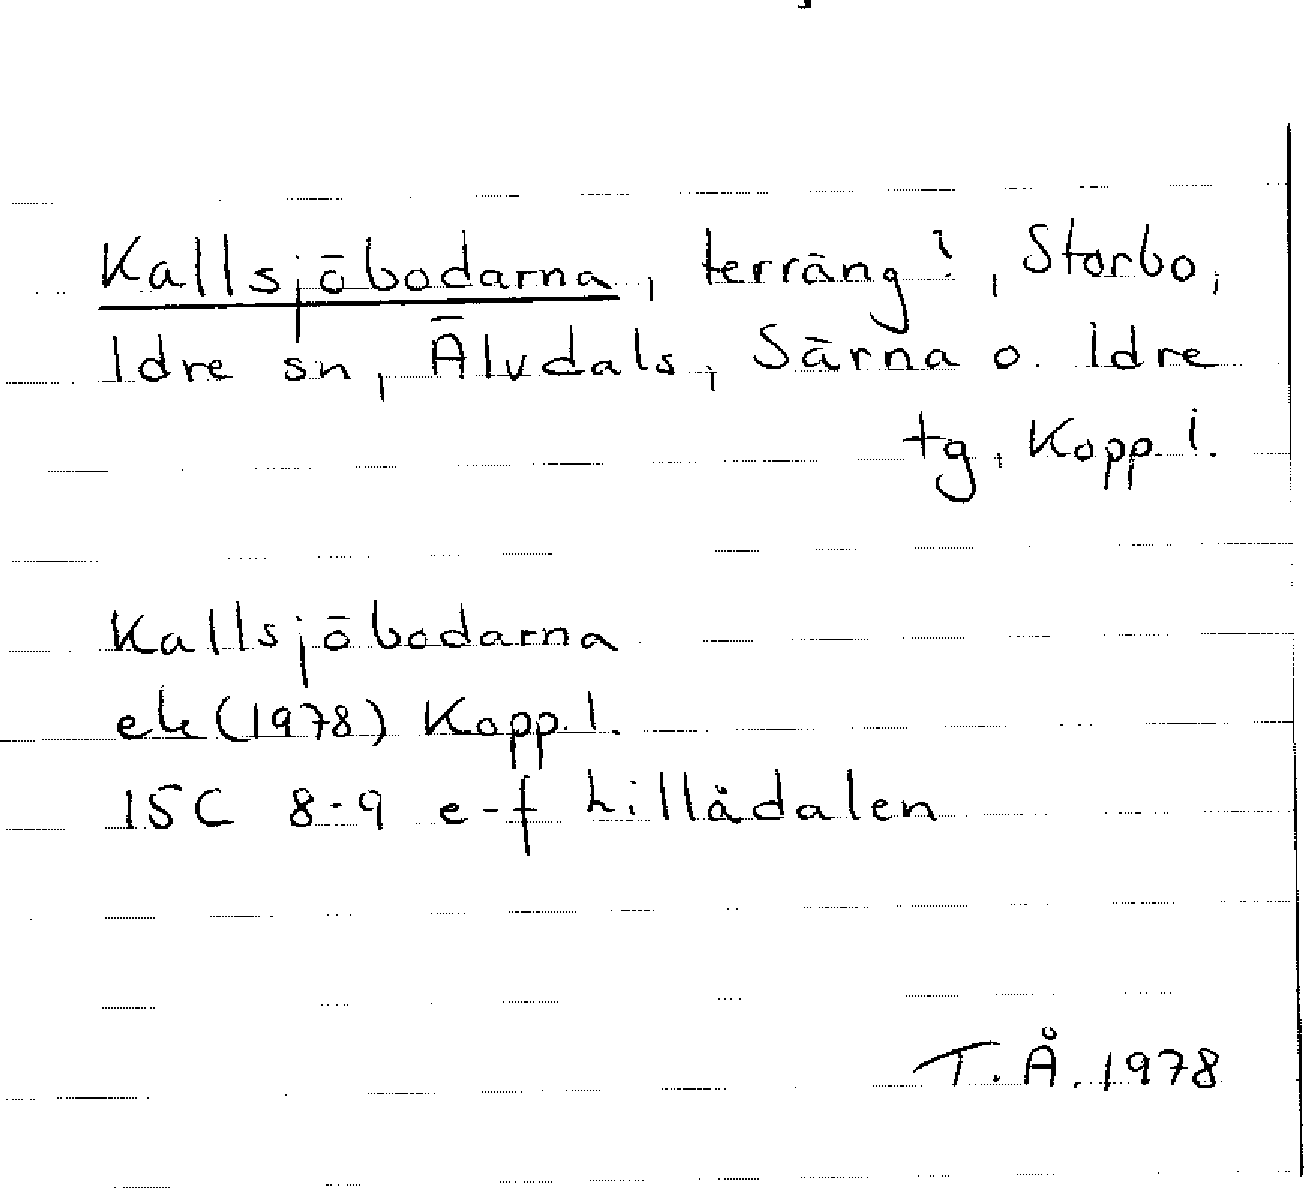 Kallsjöbodarna, terräng?, Storbo,
Idre sn, Älvdals, Särna o. Idre
tg, Kopp.l.
Kallsjöbodarna
ek (1978) Kopp.l.
15C 8-9 e-f Lillådalen
T.Å. 1978